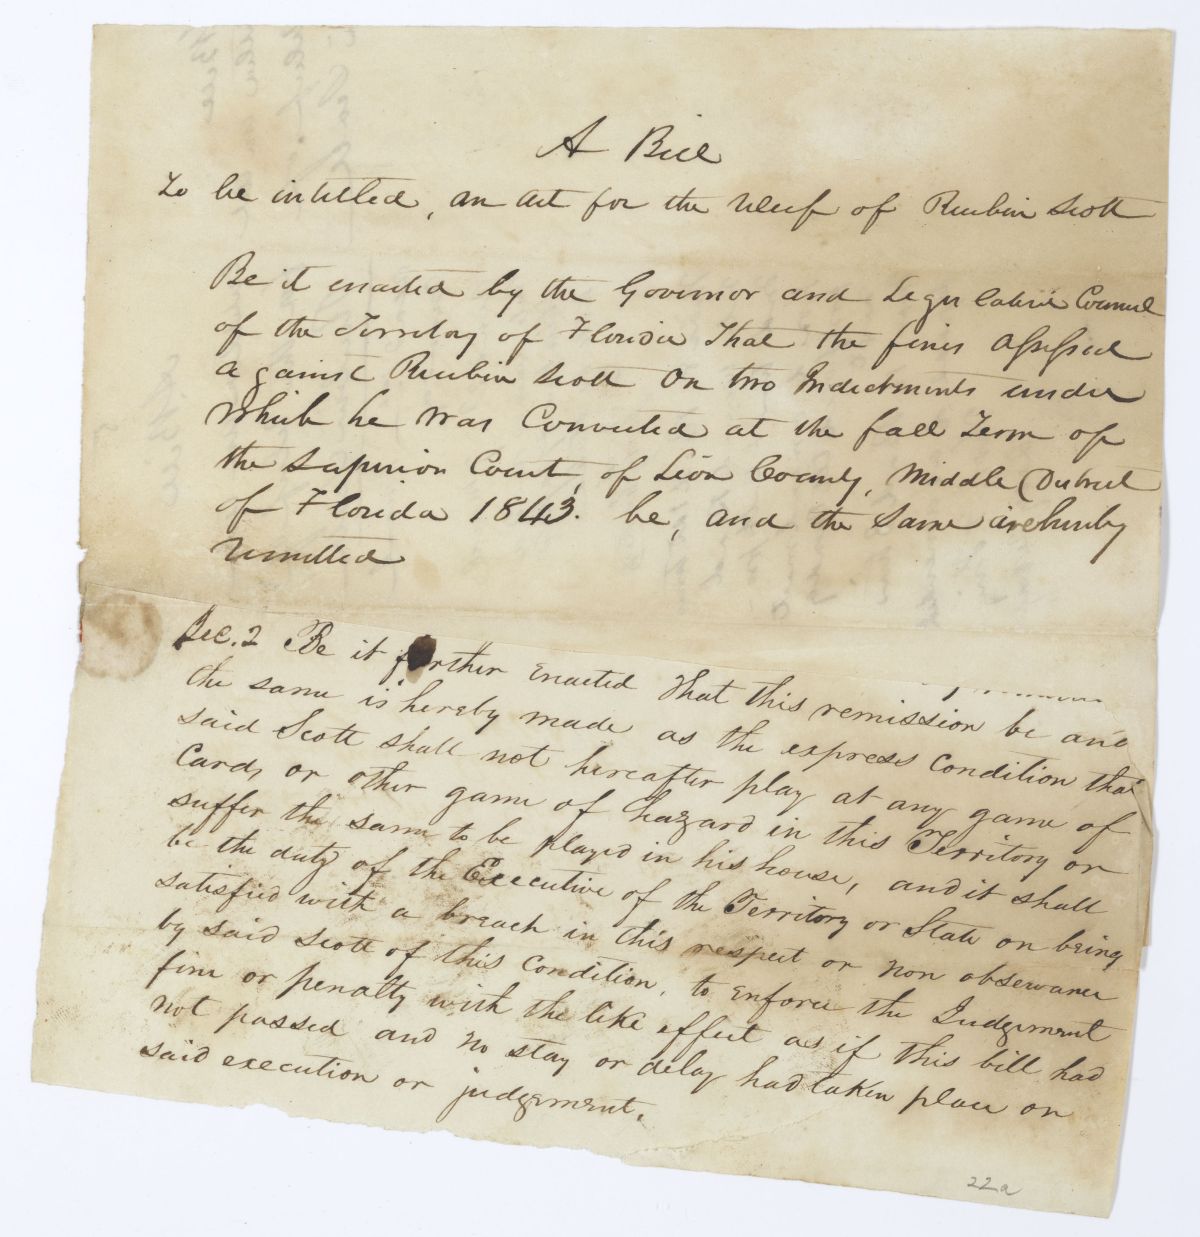 A Bill
To be intitled, an act for the relief of Reubin Scott
Be it enacted by the Governor and Legislative Council
of the Territory of Florida That the fines assessed
against Reubin Scott on two Indictments under
which he was Convicted at the fall Term of
the Superior Court, of Leon County, Middle District
of Florida 1843. be, and the same are hereby
remitted
Sec. 2 Be it further enacted that this remission be and
the same is hereby made as the express condition that
said Scott shall not hereafter play at any game of
Cards or other game of hazard in this Territory or
suffer the same to be played in his house, and it shall
be the duty of the Executive of the Territory or State on being
satisfied with a breach in this respect or non observance
by said Scott of this condition, to enforce the Judgement
fine or penalty with the like effect as if this bill had
not passed and no stay or delay had taken place on
said execution or judgement.
22a